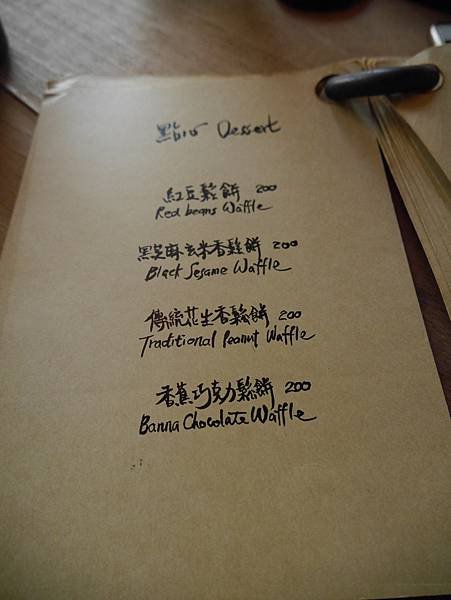 點心 Dessert
紅豆鬆餅 200
Red beans Waffle
黑芝麻玄米香鬆餅 200
Black Sesame Waffle
傳統花生香鬆餅 200
Traditional Peanut Waffle
香蕉巧克力鬆餅 200
Banna Chocolate Waffle